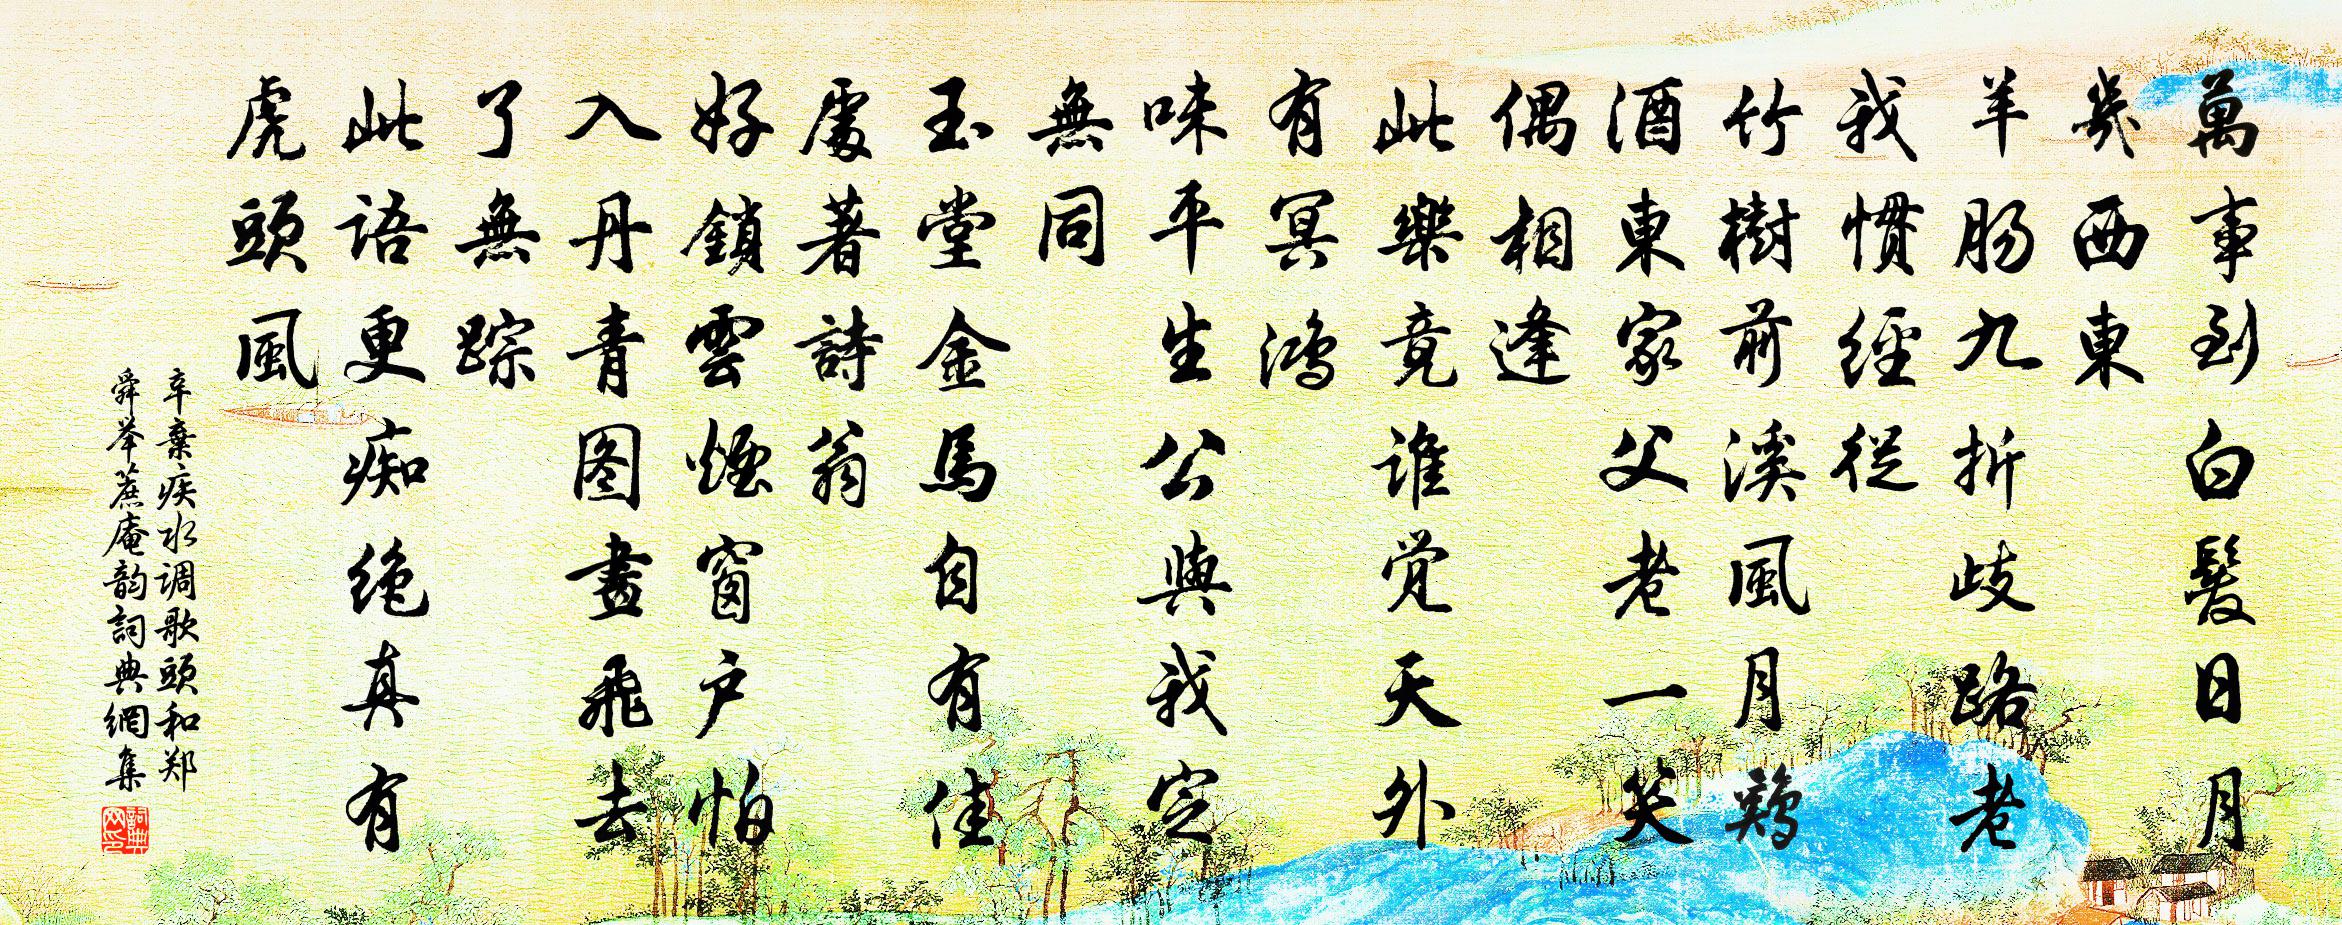 萬事到白髮日月
幾西東
羊腸九折歧路老
我慣經從
竹樹前溪風月鷄
酒東家父老一笑
偶相逢
此樂竟谁觉天外
有冥鸿
味平生公與我定
無同
玉堂金馬自有佳
處著詩翁
好鎖雲煙窗户怕
入丹青图畫飛去
了無踪
此語更痴绝真有
虎頭風
辛棄疾水调歌頭和郑
舜举蔗庵韵詞典網集
詞典网印